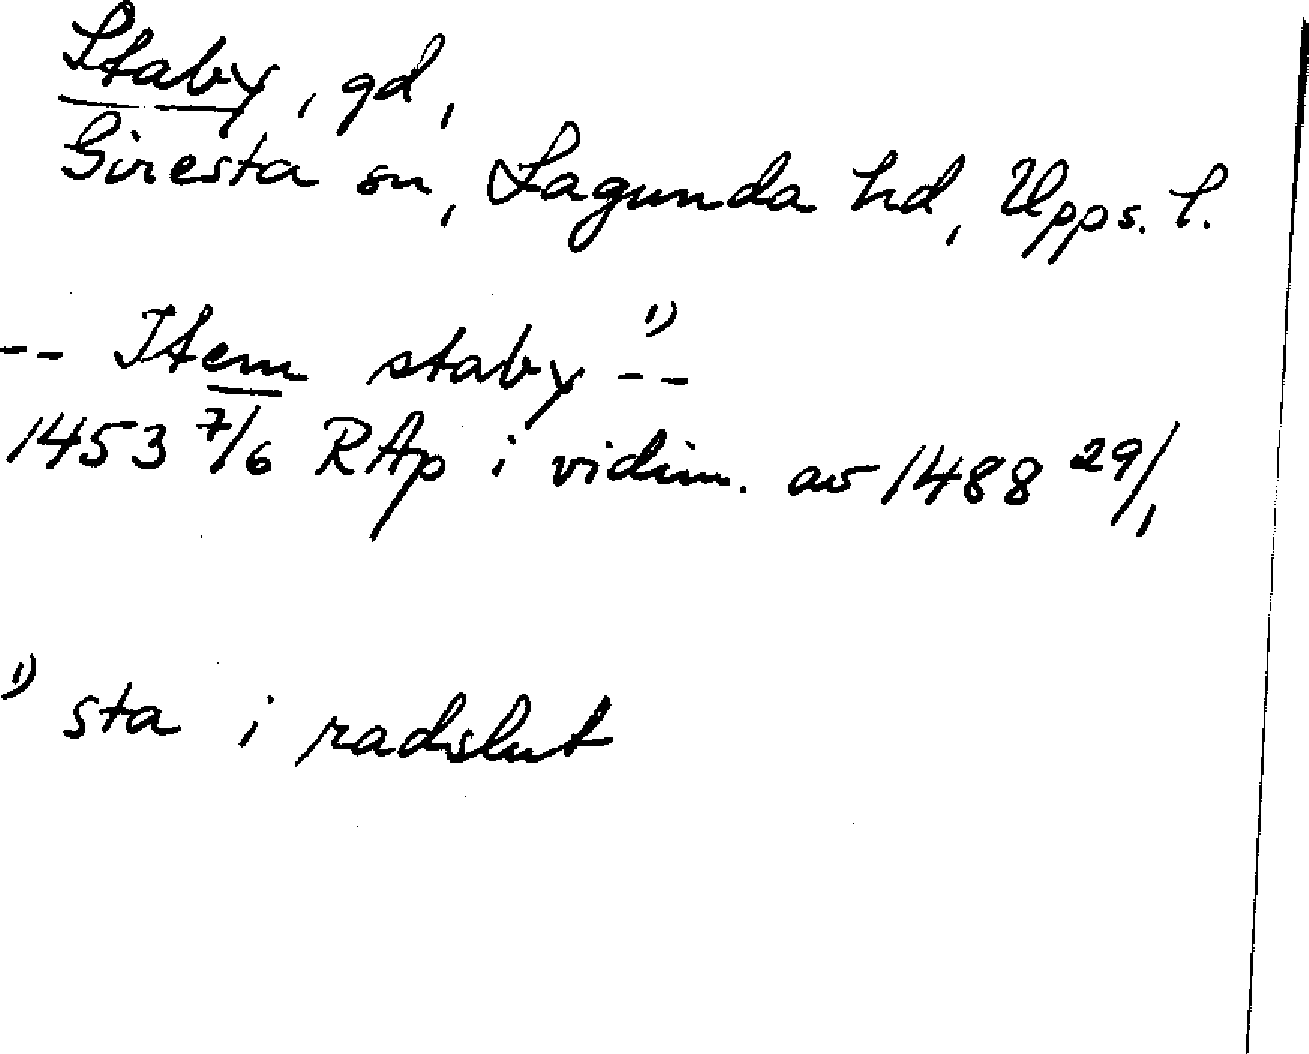 Staby, gd,
Giresta sn, Lagunda hd, Upps. l.
-- Item staby 1) --
1453 7/6 RAp i vidim. av 1488 29/1
1) sta i radslut